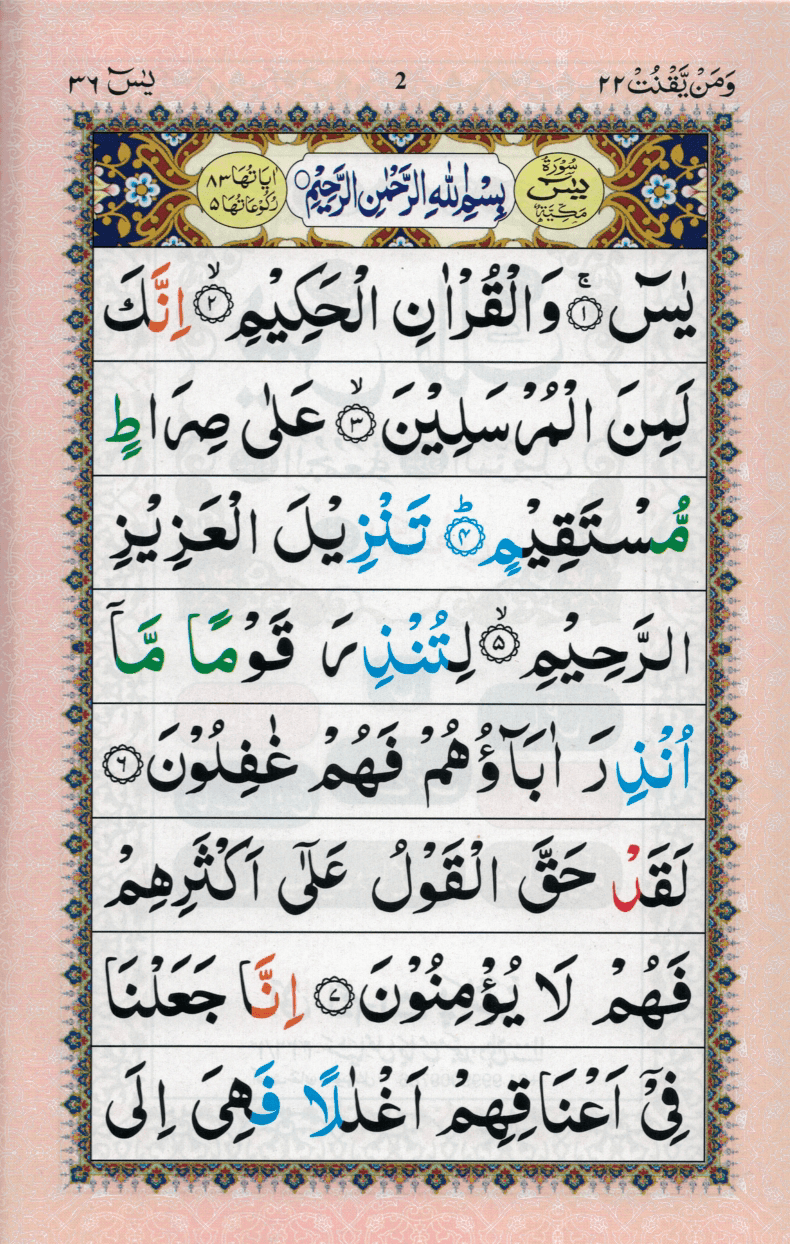 وَمَنْ يَّقْنُتْ ٢٢
2
يٰسٓ ٣٦
سُوْرَةُ يٰسٓ مَكِّيَّةٌ
بِسْمِ اللّٰهِ الرَّحْمٰنِ الرَّحِيْمِ
اٰيَاتُهَا ٨٣
رُكُوْعَاتُهَا ٥
يٰسٓ ۚ ﴿١﴾ وَالْقُرْاٰنِ الْحَكِيْمِ ۙ ﴿٢﴾ اِنَّكَ
لَمِنَ الْمُرْسَلِيْنَ ۙ ﴿٣﴾ عَلٰى صِرَاطٍ
مُّسْتَقِيْمٍ ؕ ﴿۴﴾ تَنْزِيْلَ الْعَزِيْزِ
الرَّحِيْمِ ۙ ﴿۵﴾ لِتُنْذِرَ قَوْمًا مَّاۤ
اُنْذِرَ اٰبَآؤُهُمْ فَهُمْ غٰفِلُوْنَ ﴿۶﴾
لَقَدْ حَقَّ الْقَوْلُ عَلٰٓى اَكْثَرِهِمْ
فَهُمْ لَا يُؤْمِنُوْنَ ﴿۷﴾ اِنَّا جَعَلْنَا
فِيْٓ اَعْنَاقِهِمْ اَغْلٰلًا فَهِيَ اِلَى